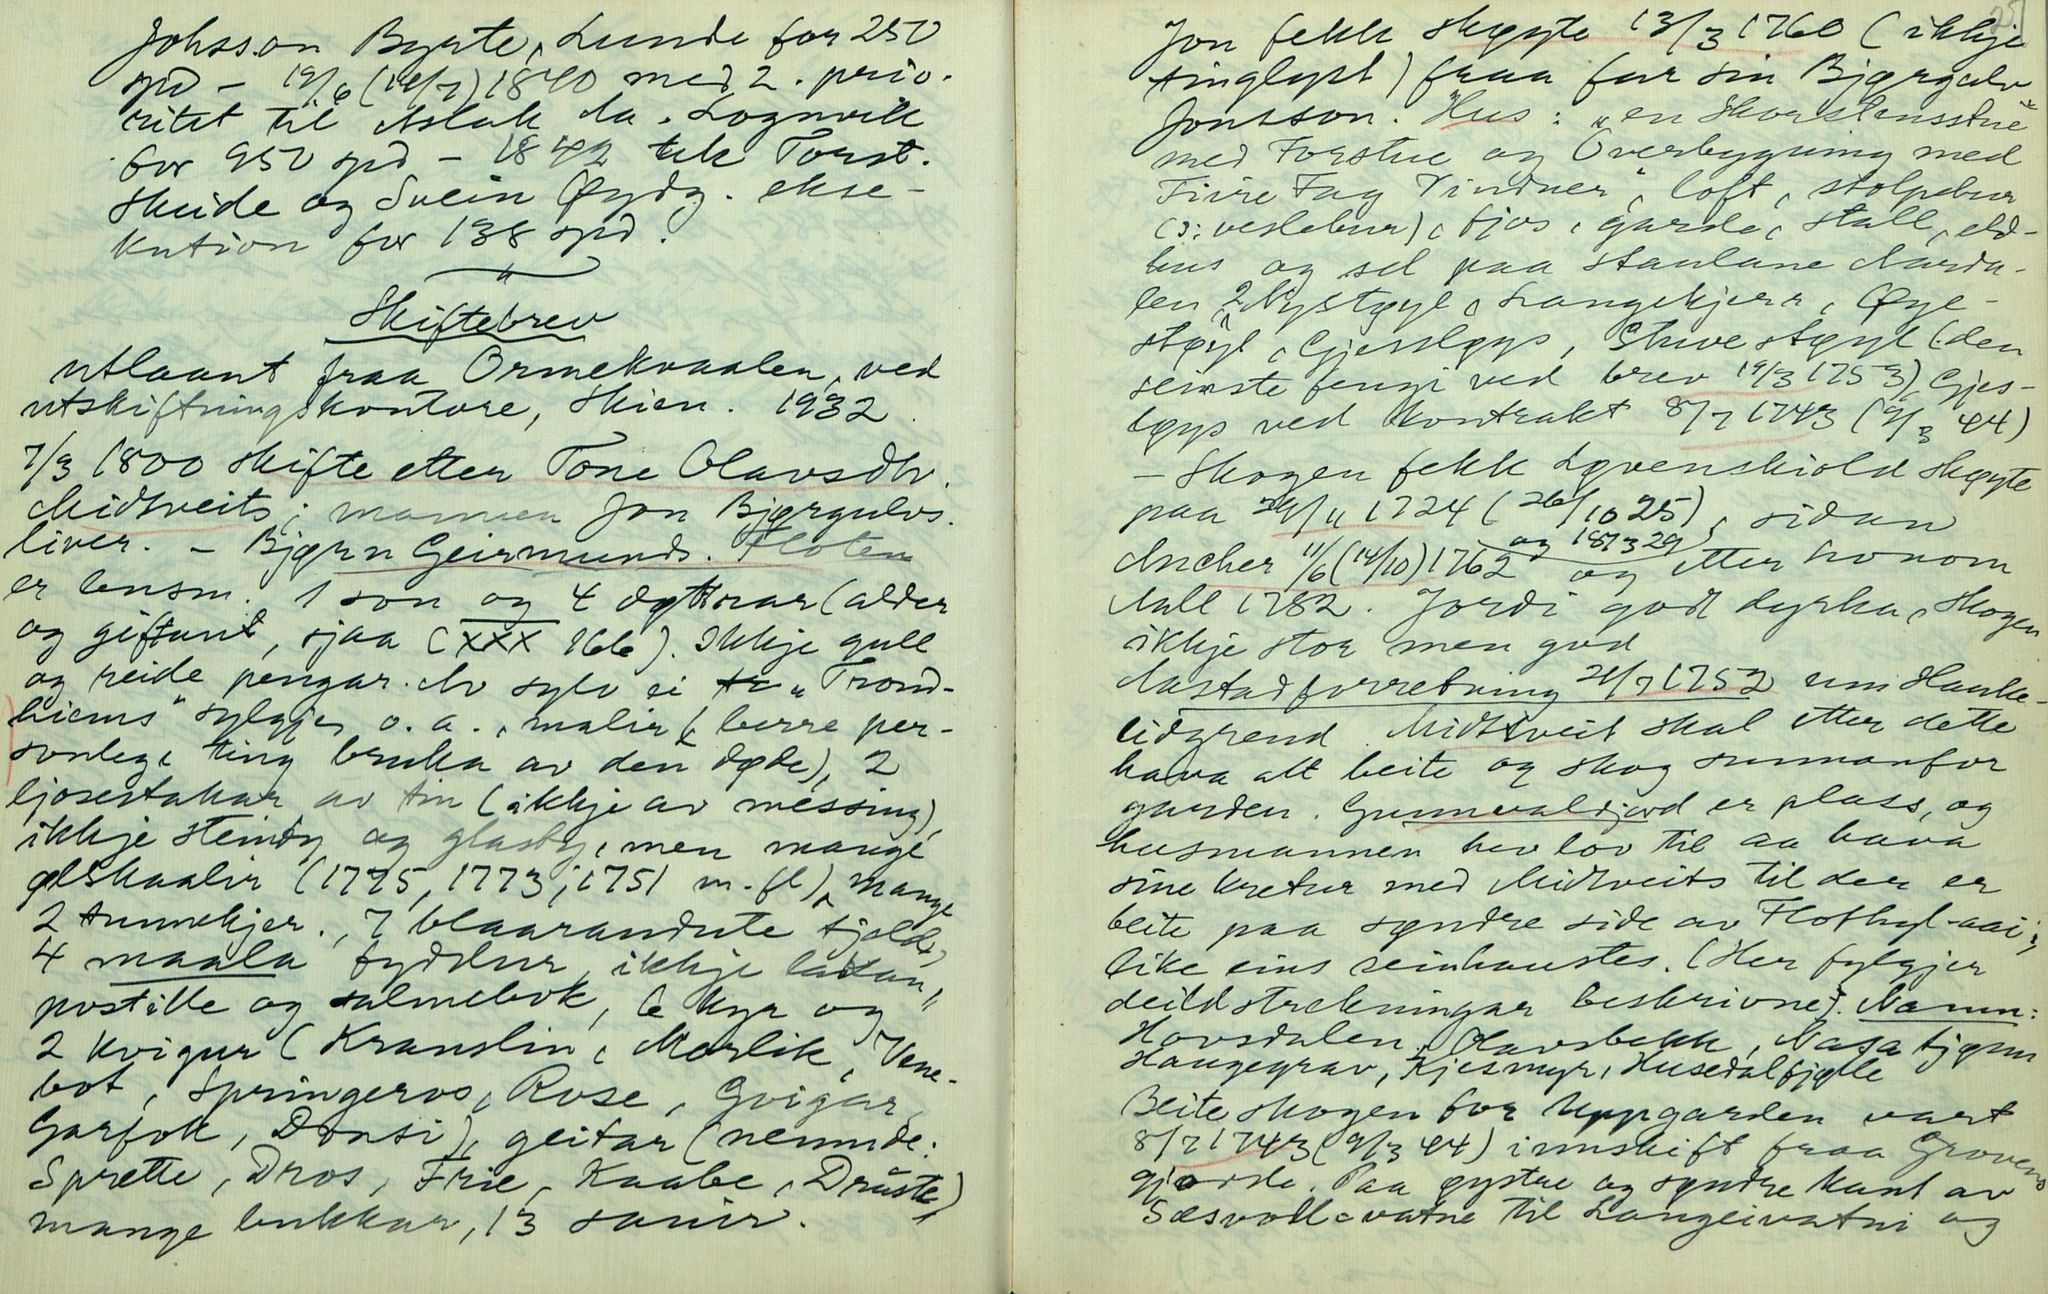 Johsson Byrte, Lunde for 250
spd – 19/6 (14/7) 1840 med 2. prio-
ritet til Aslak Aa. Lognvik
for 950 spd – 1842 tek Torst.
Skeide og Svein Øydg. ekse-
kution for 138 spd.
Skiftebrev
utlaant fraa Ormekvaalen, ved
utskiftningskontore, Skien. 1932.
7/3 1800 skifte etter Tone Olavsdtr.
Midtveits; mannen Jon Bjørgulvs.
liver. – Bjørn Geirmunds. Floten
er lensm. 1 son og 4 døttrar (alder
og giftarit, sjaa (XXX 166). Ikkje gull
og reide pengar. Av sylv ei "Trond-
hiems" sylgje, o. a., malir (berre per-
sonlege ting bruka av den døde), 2
ljosestakar av tin (ikkje av messing),
ikkje steinty og glasty, men mange
ølskaalir (1775, 1773, 1751 m. fl), mange
2 tunnekjer., 7 blaarandute tjeld,
4 maala fyddur, ikkje lakan,
postille og salmebok, 6 kyr og
2 kvigur (Kranslin, Morlik, Vene-
bot, Springeros, Rose, Gvigar,
Garfok, Donsi), geitar (nemnde:
Sprette, Dros, Frie, Kaabe, Druste)
mange bukkar, 13 sauir.
Jon fekk skøyte 13/3 1760 (ikkje
tinglyst) fraa far sin Bjørgulv
Jonsson. Hus: "en Skorstensstue
med Forstue og Överbygning med
Fire Fag Vindner", loft, stolpebur
(ɔ: veslebur), fjos, garde, stall, eld-
hus og sel paa staulane Aarda-
len, 2 Nystøyl, Langekjerr, Øye-
støyl, Gjessløys, Stuvestøyl (den
seinste fengi ved brev 19/3 1753), Gjes-
løys ved kontrakt 8/7 1743 (9/3 44)
– Skogen fekk Løvenskiold skøyte
paa 24/11 1724 (26/10 25), sidan
og 18/3 29
Ancher 11/6 (14/10) 1762 og etter honom
Aall 1782. Jordi godt dyrka, skogen
ikkje stor men god
Aastadforretning 21/7 1752 um Hauke-
lidgrend. Midtveit skal etter dette
hava alt beite og skog sunnanfor
garden. Gunnvaldjord er plass, og
husmannen hev lov til aa hava
sine kretur med Midtveits til der er
beite paa syndre side av Flothyl-aai;
like eins reinhaustes. (Her fylgjer
deildstrekningar beskrivne). Namn:
Hovsdalen, Olavsbekk, Nasatjønn
Haugegrav, Kjesmyr, Husedalfjølle
Beiteskogen for Uppgarden vart
8/7 1743 (9/3 44) innskift fraa Grovens
gjorde. Paa øystre og syndre kant av
Sæsvoll-vatne til Langeivatni og